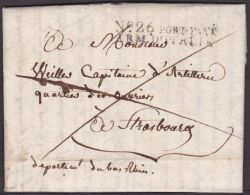 No. 26 PORT PAYÉ
ARM. D'ITALIE
A Monsieur
Weilles Capitaine d'Artillerie
quartier des ouvriers
a Strasbourg
departient du bas Rhin.